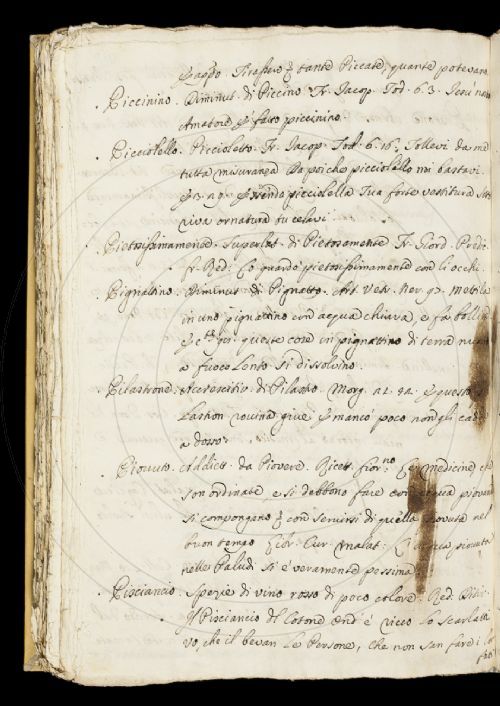 Tirassero tante Piccate, quante potevano
Piccinino. Diminut. di Piccino. Fr. Jacop. Tod. 6. 3. Jesù nostro
Amatore fatto piccinino.
Picciolello. Piccioletto. Fr. Jacop. Tod. 6. 16. Tollevi da me
tutta misuranza Da poiche picciolello mi bastavi.
picciolella Tua forte vestitura
viva ornatura tu celavi.
Pietosissimamente. Superlat. di Pietosamente. Fr. Giord. Pred.
Lo guardo pietosissimamente con li occhi.
Pignattino. Diminut. di Pignatto. Art. Vetr. Ner. 92. Mettilo
in uno pignattino con acqua chiara, e fa bollir
queste cose in pignattino di terra
a fuoco lento si dissolvino.
Pilastrone. Accrescitiv. di Pilastro. Morg. questo
rovina giue mancò poco non gli
adosso.
Piovuto. Addiett. da Piovere. Ricett. Fior. medicine
son ordinate e si debbono fare con acqua
si compongano con servirsi di quella piovuta nel
buon tempo. Cur. malat. acqua piovuta
nelle Paludi si è veramente pessima.
Pisciancio. Spezie di vino rosso di poco colore. Red. Ditir.
Pisciancio del Cotone Ond' è ricco lo Scarlatti
Vo, che il bevan le Persone, che non san fare i